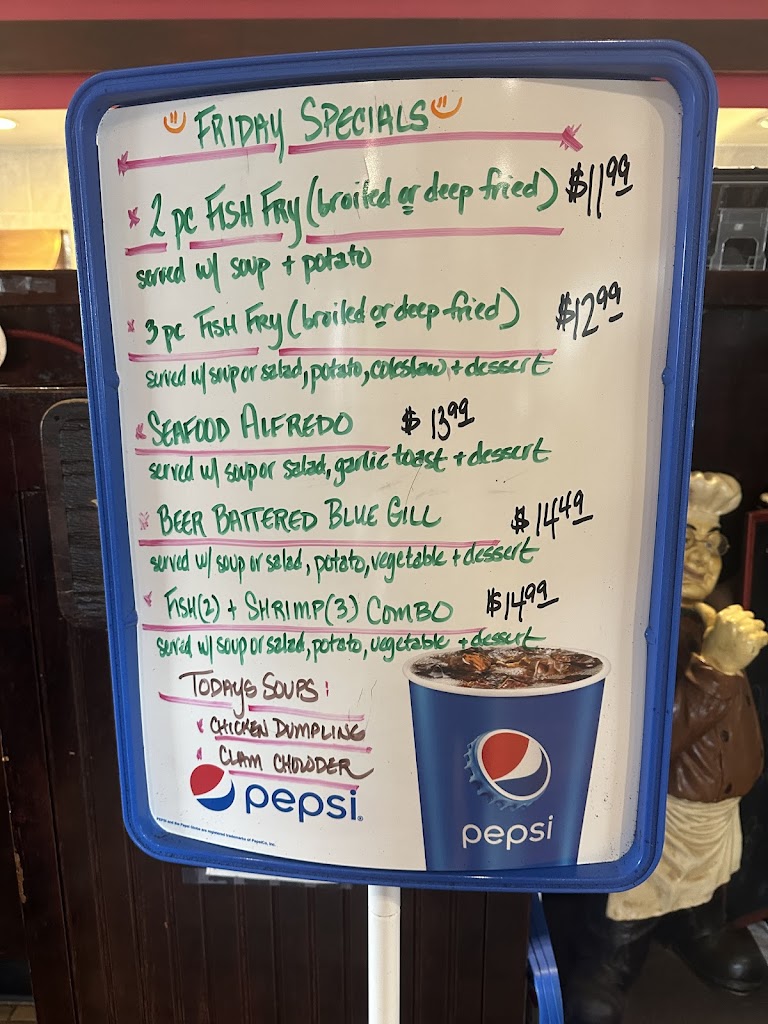 FRIDAY SPECIALS
2 pc FISH FRY (broiled or deep fried) $11.99
served w/ soup + potato
3 pc FISH FRY (broiled or deep fried) $12.99
served w/ soup or salad, potato, coleslaw + dessert
SEAFOOD ALFREDO $13.99
served w/ soup or salad, garlic toast + dessert
BEER BATTERED BLUE GILL $14.49
served w/ soup or salad, potato, vegetable + dessert
FISH(2) + SHRIMP(3) COMBO $14.99
served w/ soup or salad, potato, vegetable + dessert
TODAYS SOUPS:
CHICKEN DUMPLING
CLAM CHOWDER
pepsi
pepsi
PEPSI and the Pepsi Globe are registered trademarks of PepsiCo, Inc.